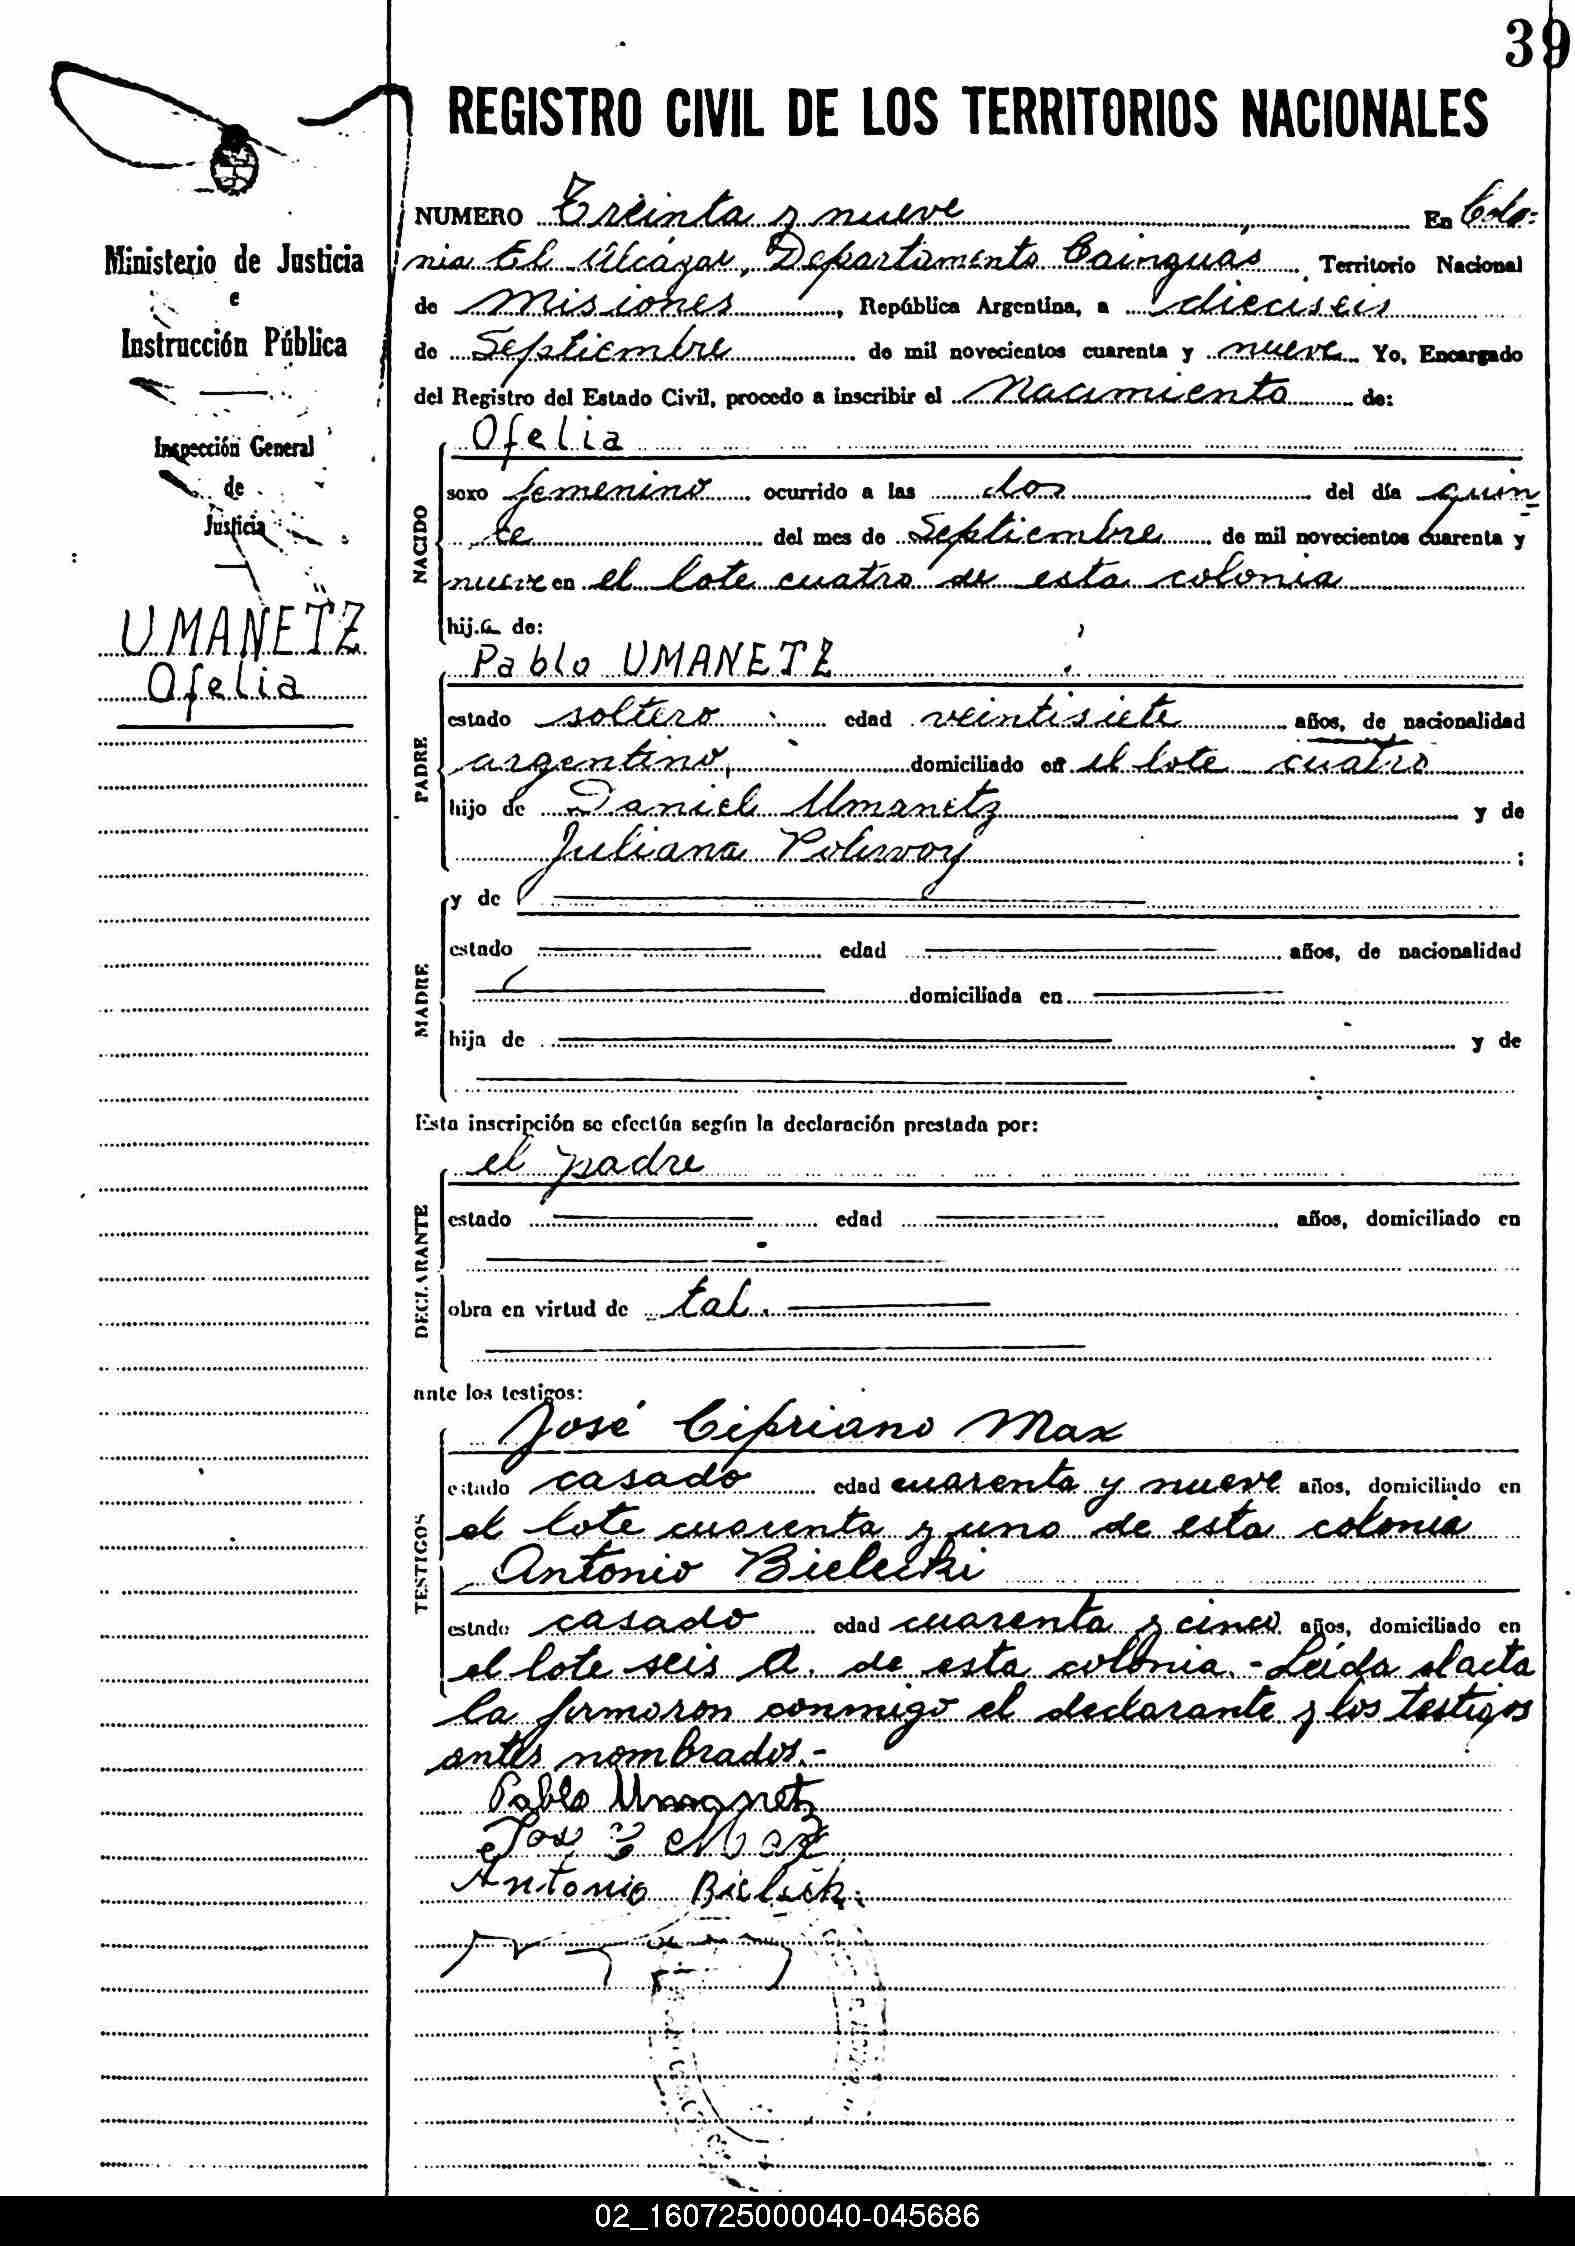 39
REGISTRO CIVIL DE LOS TERRITORIOS NACIONALES
Ministerio de Justicia
e
Instrucción Pública
Inspección General
de
Justicia
UMANETZ
Ofelia
NUMERO Treinta y nueve En Colo=
nia El Alcázar, Departamento Cainguas, Territorio Nacional
de Misiones, República Argentina, a dieciseis
de Septiembre de mil novecientos cuarenta y nueve Yo, Encargado
del Registro del Estado Civil, procedo a inscribir el Nacimiento de:
Ofelia
NACIDO
sexo femenino ocurrido a las dos del día quin=
ce del mes de Septiembre de mil novecientos cuarenta y
nueve en el lote cuatro de esta colonia
hij.a de:
Pablo UMANETZ
PADRE
estado soltero edad veintisiete años, de nacionalidad
argentino, domiciliado en el lote cuatro
hijo de Daniel Umanetz y de
Juliana Poliwoy;
y de
MADRE
estado edad años, de nacionalidad
domiciliada en
hija de y de
Esta inscripción se efectúa según la declaración prestada por:
el padre
DECLARANTE
estado edad años, domiciliado en
obra en virtud de tal.
ante los testigos:
José Cipriano Max
TESTIGOS
estado casado edad cuarenta y nueve años, domiciliado en
el lote cuarenta y uno de esta colonia
Antonio Bielecki
estado casado edad cuarenta y cinco años, domiciliado en
el lote seis A. de esta colonia.- Leída el acta
la firmaron conmigo el declarante y los testigos
antes nombrados.-
Pablo Umanetz
Max
Antonio Bielecki
02_160725000040-045686